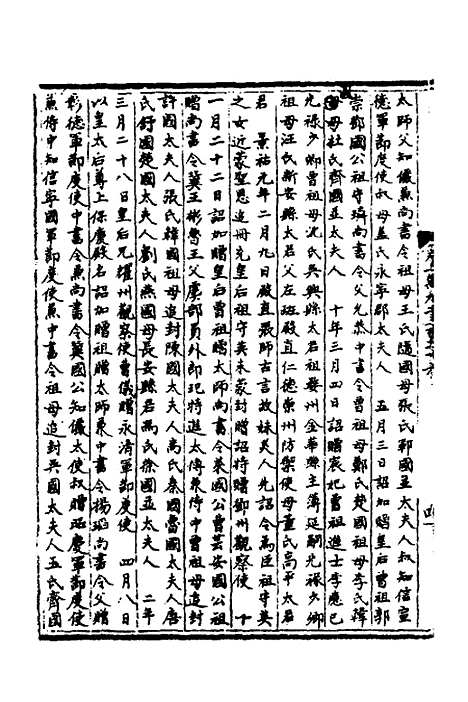 太師父知儼兼尚書令祖母王氏隨國母張氏郓國並太夫人叔知信宣
德軍節度使叔母孟氏永寧郡太夫人　五月三日詔贈皇后曾祖郭
崇鄧國公祖守璘尚書令父允恭中書令曾祖母鄭氏楚國祖母李氏韓
國母杜氏齊國並太夫人　十年三月四日詔贈宸妃曾祖進士李應已
光祿少卿曾祖母沈氏吳興縣太君祖婺州金華縣主簿延嗣光祿少卿
祖母汪氏新安縣太君父左班殿直仁德崇州防禦使母董氏高平太君
君　景祐元年二月九日殿直張師古言故妹美人先詔令為臣祖守英
之女近蒙聖恩追冊充皇后祖守英未蒙封贈詔特贈鄧州觀察使　十
一月二十二日詔加贈皇后曾祖贈太師尚書令萊國公曹芸安國公祖
贈尚書令冀王彬魯王父虞部員外郎玘特進太傅兼侍中曾祖母追封
許國太夫人張氏韓國祖母追封陳國太夫人高氏秦國曹國太夫人唐
氏舒國楚國太夫人劉氏燕國母長安縣君馮氏徐國並太夫人　二年
三月二十八日皇后兄耀州觀察使曹儀贈永清軍節度使　四月八日
以皇太后尊上保慶殿名詔加贈祖贈太師兼中書令楊瑫尚書令父贈
彰德軍節度使中書令兼尚書令冀國公知儼太使叔贈昭慶軍節度使
兼侍中知信寧國軍節度使兼中書令祖母追封吳國太夫人王氏齊國